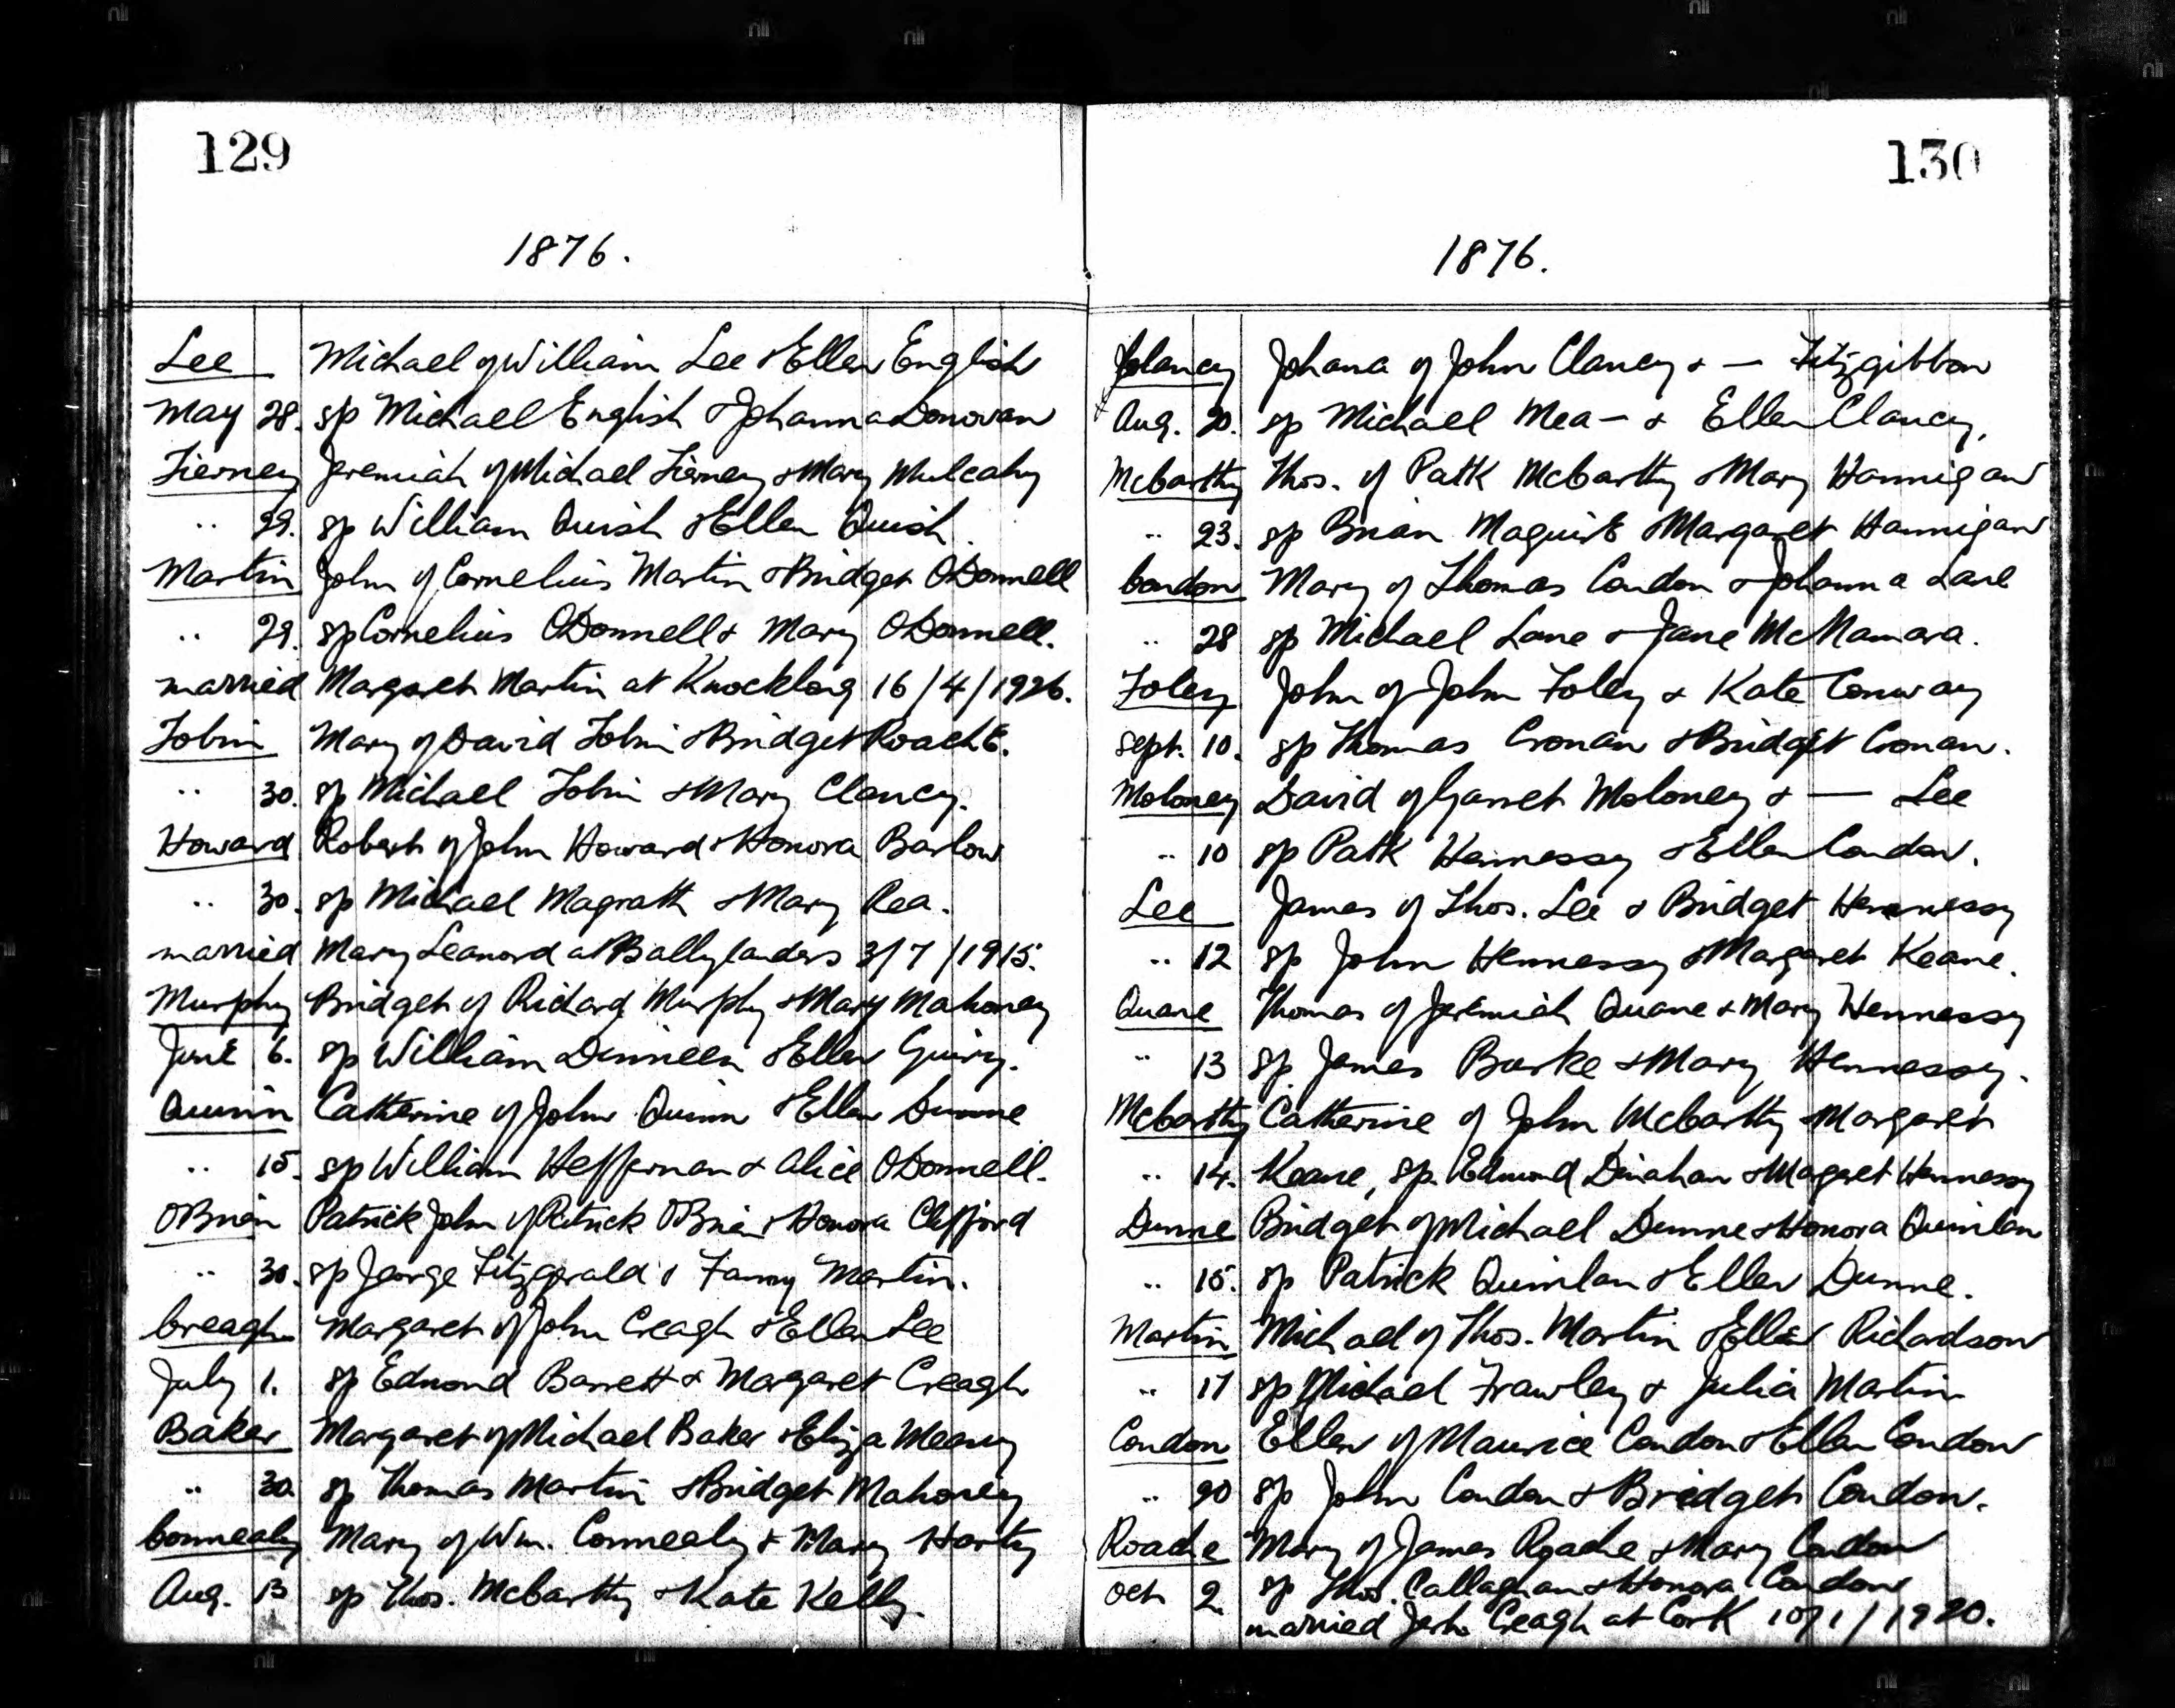 129
1876.
Lee Michael of William Lee & Ellen English
May 28. sp Michael English & Johanna Donovan
Tierney Jeremiah of Michael Tierney & Mary Mulcahy
.. 29. sp William Quish & Ellen Quish.
Martin John of Cornelius Martin & Bridget ODonnell
.. 29. sp Cornelius ODonnell & Mary ODonnell.
married Margaret Martin at Knocklong 16/4/1926.
Tobin Mary of David Tobin & Bridget Roache.
.. 30. sp Michael Tobin & Mary Clancy.
Howard Robert of John Howard & Honora Barlow
.. 30. sp Michael Magrath & Mary Rea.
married Mary Leanord at Ballylanders 3/7/1915.
Murphy Bridget of Richard Murphy & Mary Mahoney
June 6. sp William Dinneen & Ellen Guiry.
Quinn Catherine of John Quinn & Ellen Dunne
.. 15. sp William Heffernan & Alice ODonnell.
OBrien Patrick John of Patrick OBrien & Honora Clifford
.. 30. sp George Fitzgerald & Fanny Martin.
Creagh Margaret of John Creagh & Ellen Lee
July 1. sp Edmond Barrett & Margaret Creagh
Baker Margaret of Michael Baker & Eliza Meany
.. 30. sp Thomas Martin & Bridget Mahoney
Connealy Mary of Wm. Connealy & Mary Harty
Aug. 13 sp Thos. McCarthy & Kate Kelly.
130
1876.
Clancy Johana of John Clancy & — Fitzgibbon
Aug. 20. sp Michael Mea— & Ellen Clancy.
McCarthy Thos. of Patk McCarthy & Mary Hannigan
.. 23. sp Brian Maguire & Margaret Hannigan
Condon Mary of Thomas Condon & Johanna Lane
.. 28 sp Michael Lane & Jane McNamara.
Foley John of John Foley & Kate Conway
Sept. 10. sp Thomas Cronan & Bridget Cronan.
Moloney David of Garret Moloney & — Lee
.. 10 sp Patk Hennessy & Ellen Condon.
Lee James of Thos. Lee & Bridget Hennessy
.. 12 sp John Hennessy & Margaret Keane.
Quane Thomas of Jeremiah Quane & Mary Hennessy
.. 13 sp. James Burke & Mary Hennessy.
McCarthy Catherine of John McCarthy & Margaret
.. 14. Keane, sp. Edmund Dinahan & Margaret Hennessy
Dunne Bridget of Michael Dunne & Honora Quinlan
.. 15. sp Patrick Quinlan & Ellen Dunne.
Martin Michael of Thos. Martin & Ellen Richardson
.. 17 sp Michael Frawley & Julia Martin
Condon Ellen of Maurice Condon & Ellen Condon
.. 20 sp John Condon & Bridget Condon.
Roache Mary of James Roache & Mary Condon
Oct 2. sp Thos. Callaghan & Honora Condon
married Jerh. Creagh at Cork 10/1/1920.